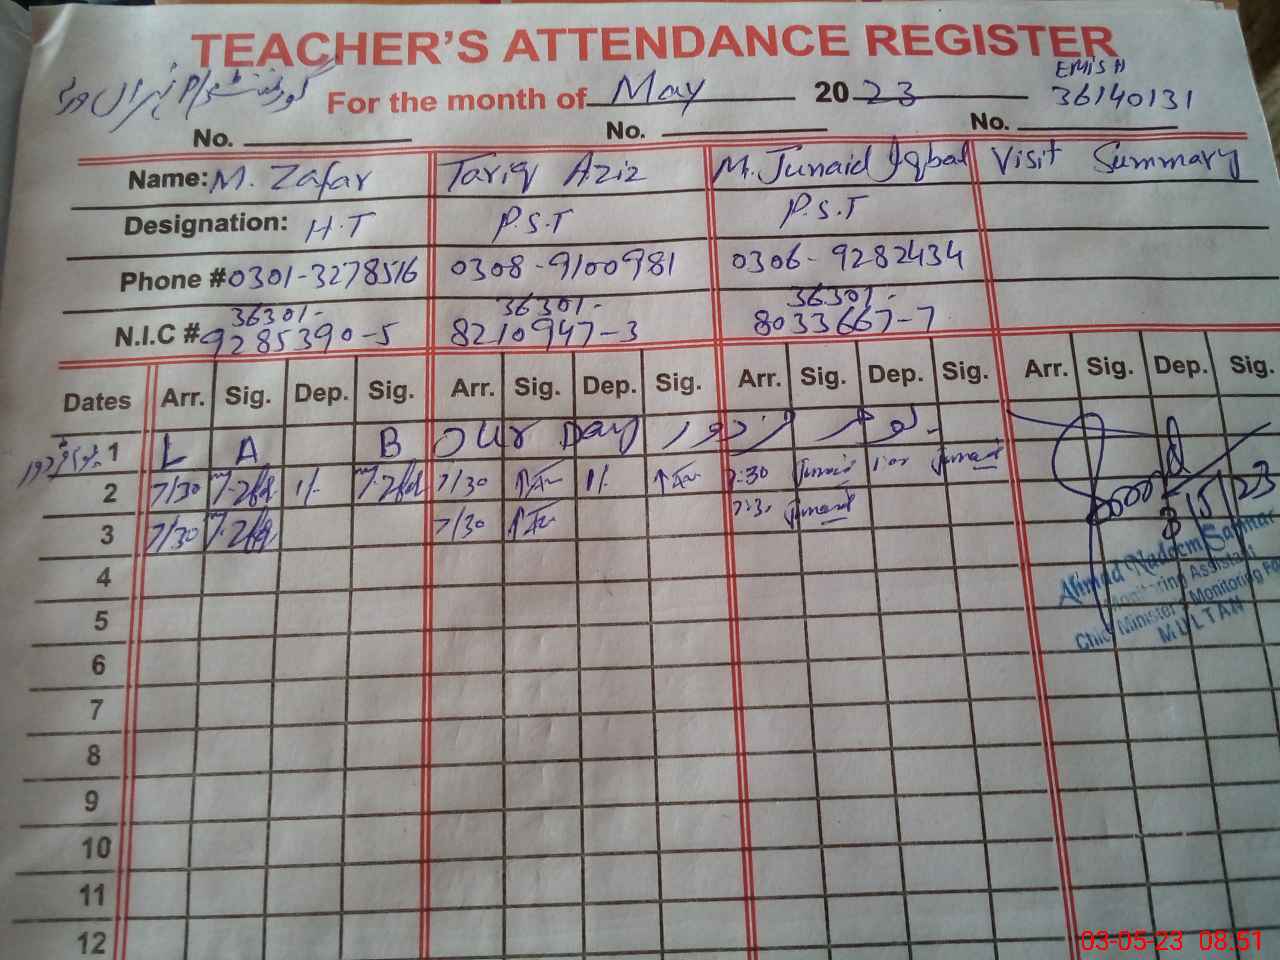 TEACHER'S ATTENDANCE REGISTER
For the month of May 2023
EMIS #
36140131
No. No. No.
Name: M. Zafar Tariq Aziz M. Junaid Iqbal Visit Summary
Designation: H.T P.S.T P.S.T
Phone # 0301-3278516 0308-9100981 0306-9282434
36301- 36301- 36301-
N.I.C # 9285390-5 8210947-3 8033667-7
Dates Arr. Sig. Dep. Sig. Arr. Sig. Dep. Sig. Arr. Sig. Dep. Sig. Arr. Sig. Dep. Sig.
1 L A B OUR Day
2 7/30 1/- 7/30 1/- 7:30 Junaid Junaid
3 7/30 7/30 7:3 Junaid
4
5
6
7
8
9
10
11
12
3/5/23
Ahmad Nadeem
Monitoring Assistant
Chief Minister Monitoring
MULTAN
03-05-23 08:51